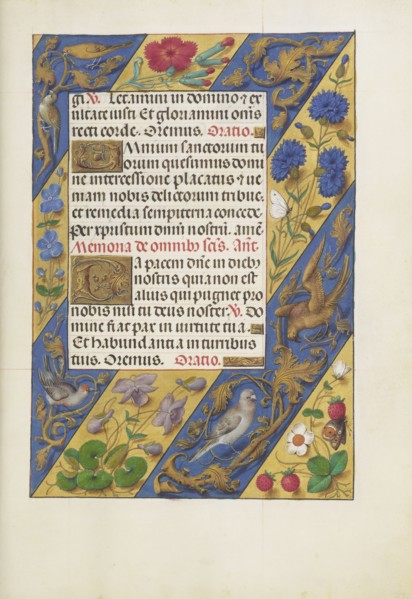 gi. V. Letamini in domino ⁊ ex
ultate iusti Et gloriamini om̄s
recti corde. Oremus. Oratio.
OMnium sanctorum tu
orum quesumus domi
ne intercessione placatus ⁊ ue
niam nobis delictorum tribue.
et remedia sempiterna concede.
Per xpristum dn̄m nostrū. amē.
Memoria de omnib⁹ scīs. Ant.
Da pacem dn̄e in dieb⁹
nostris quia non est
alius qui pugnet pro
nobis nisi tu deus noster. V. Do
mine fiat pax in uirtute tua.
Et habundantia in turribus
tuis. Oremus. Oratio.